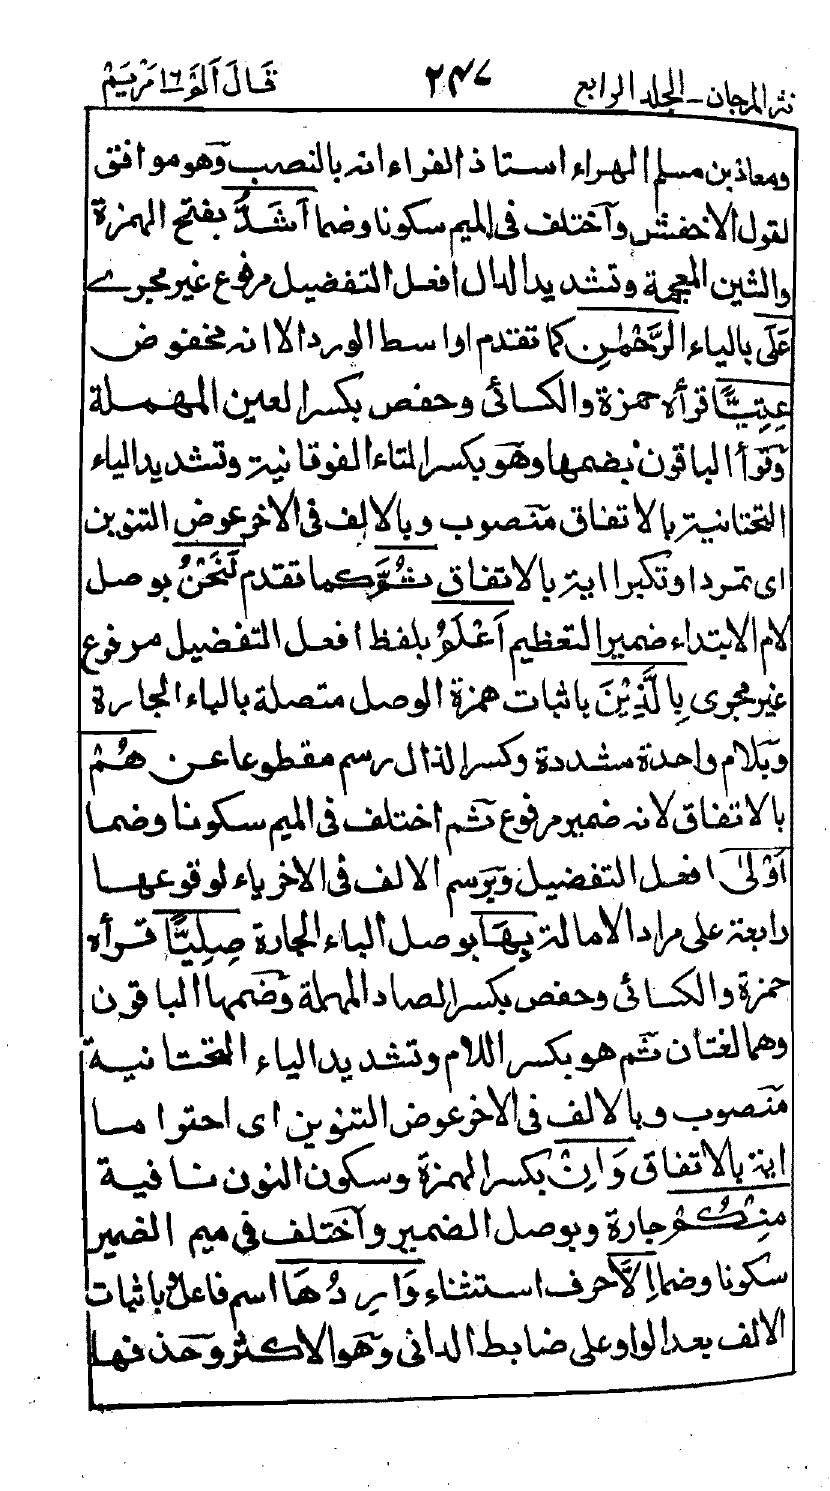 نثر المرجان - الجلد الرابع ٢٤٧ قَالَ اَلَمْ ١٦ مَرْيَمْ
ومعاذ بن مسلم الهراء استاذ الفراء انه بالنصب وهو موافق
لقول الاخفش وآختلف فى الميم سكونا وضما اَشَدُّ بفتح الهمزة
والشين المعجمة وتشديد الدال افعل التفضيل مرفوع غير مجرے
عَلَى بالياء الرَّحْمٰنِ كما تقدم اواسط الورد الا انه مخفوض
عِتِيًّا قرأه حمزة والكسائى وحفص بكسر العين المهملة
وقرأ الباقون بضمها وهو بكسر التاء الفوقانية وتشديد الياء
التحتانية بالاتفاق منصوب وبالالف فى الاخر عوض التنوين
اى تمردا وتكبرا اية بالاتفاق ثُمَّ كما تقدم لَنَحْنُ بوصل
لام الابتداء ضمير التعظيم اَعْلَمُ بلفظ افعل التفضيل مرفوع
غير مجرى بِالَّذِيْنَ باثبات همزة الوصل متصلة بالباء الجارة
وبلام واحدة مشددة وكسر الذال رسم مقطوعا عن هُمْ
بالاتفاق لانه ضمير مرفوع ثم اختلف فى الميم سكونا وضما
اَوْلٰى افعل التفضيل ويرسم الالف فى الاخر ياء لوقوعها
رابعة على مراد الامالة بِهَا بوصل الباء الجارة صِلِيًّا قرأه
حمزة والكسائى وحفص بكسر الصاد المهملة وضمها الباقون
وهما لغتان ثم هو بكسر اللام وتشديد الياء التحتانية
منصوب وبالالف فى الاخر عوض التنوين اى احتراما
اية بالاتفاق وَاِنْ بكسر الهمزة وسكون النون نافية
مِنْكُمْ جارة وبوصل الضمير وآختلف فى ميم الضمير
سكونا وضما اِلَّا حرف استثناء وَارِدُهَا اسم فاعل باثبات
الالف بعد الواو على ضابط الدانى وهو الاكثر وحذفها